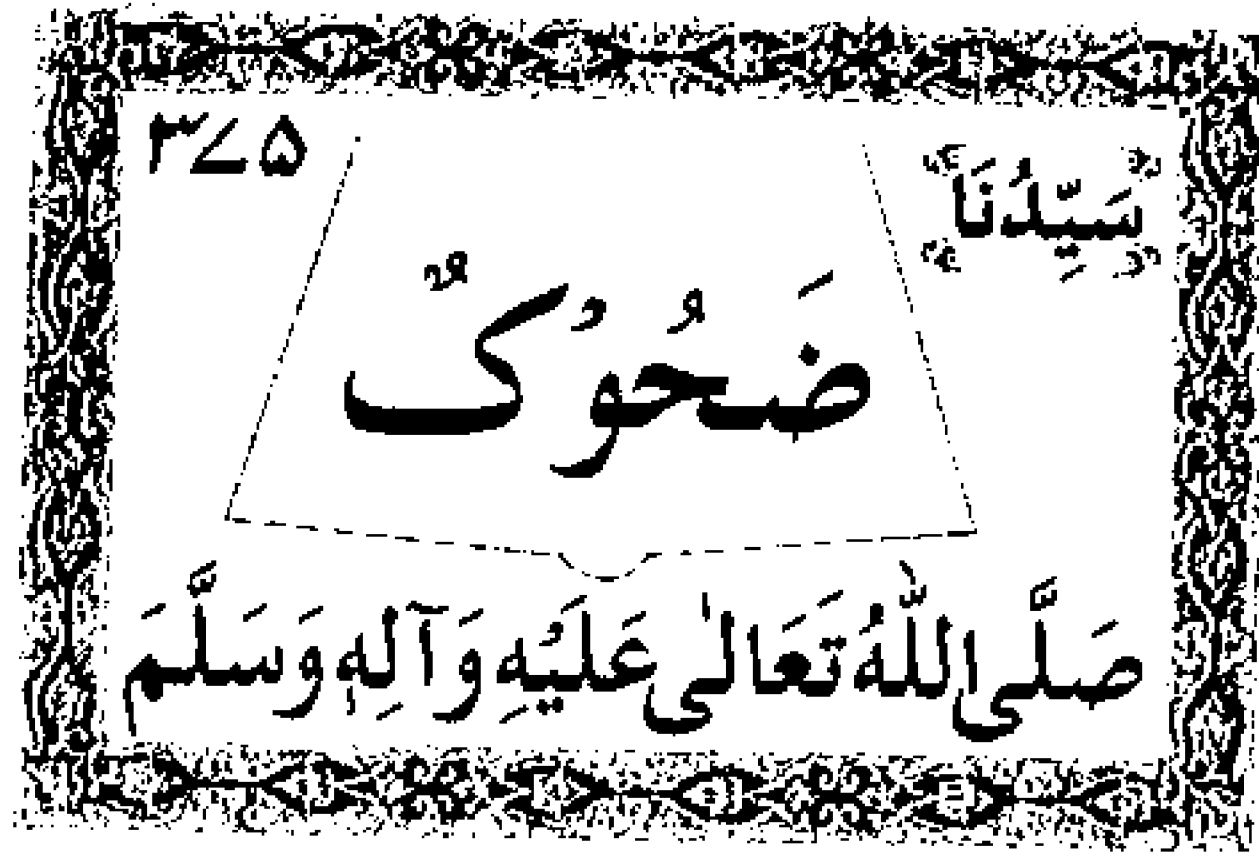 ۳۷۵
سَيِّدُنَا
ضَحُوْكٌ
صَلَّى اللّٰهُ تَعَالٰى عَلَيْهِ وَآلِهٖ وَسَلَّمَ